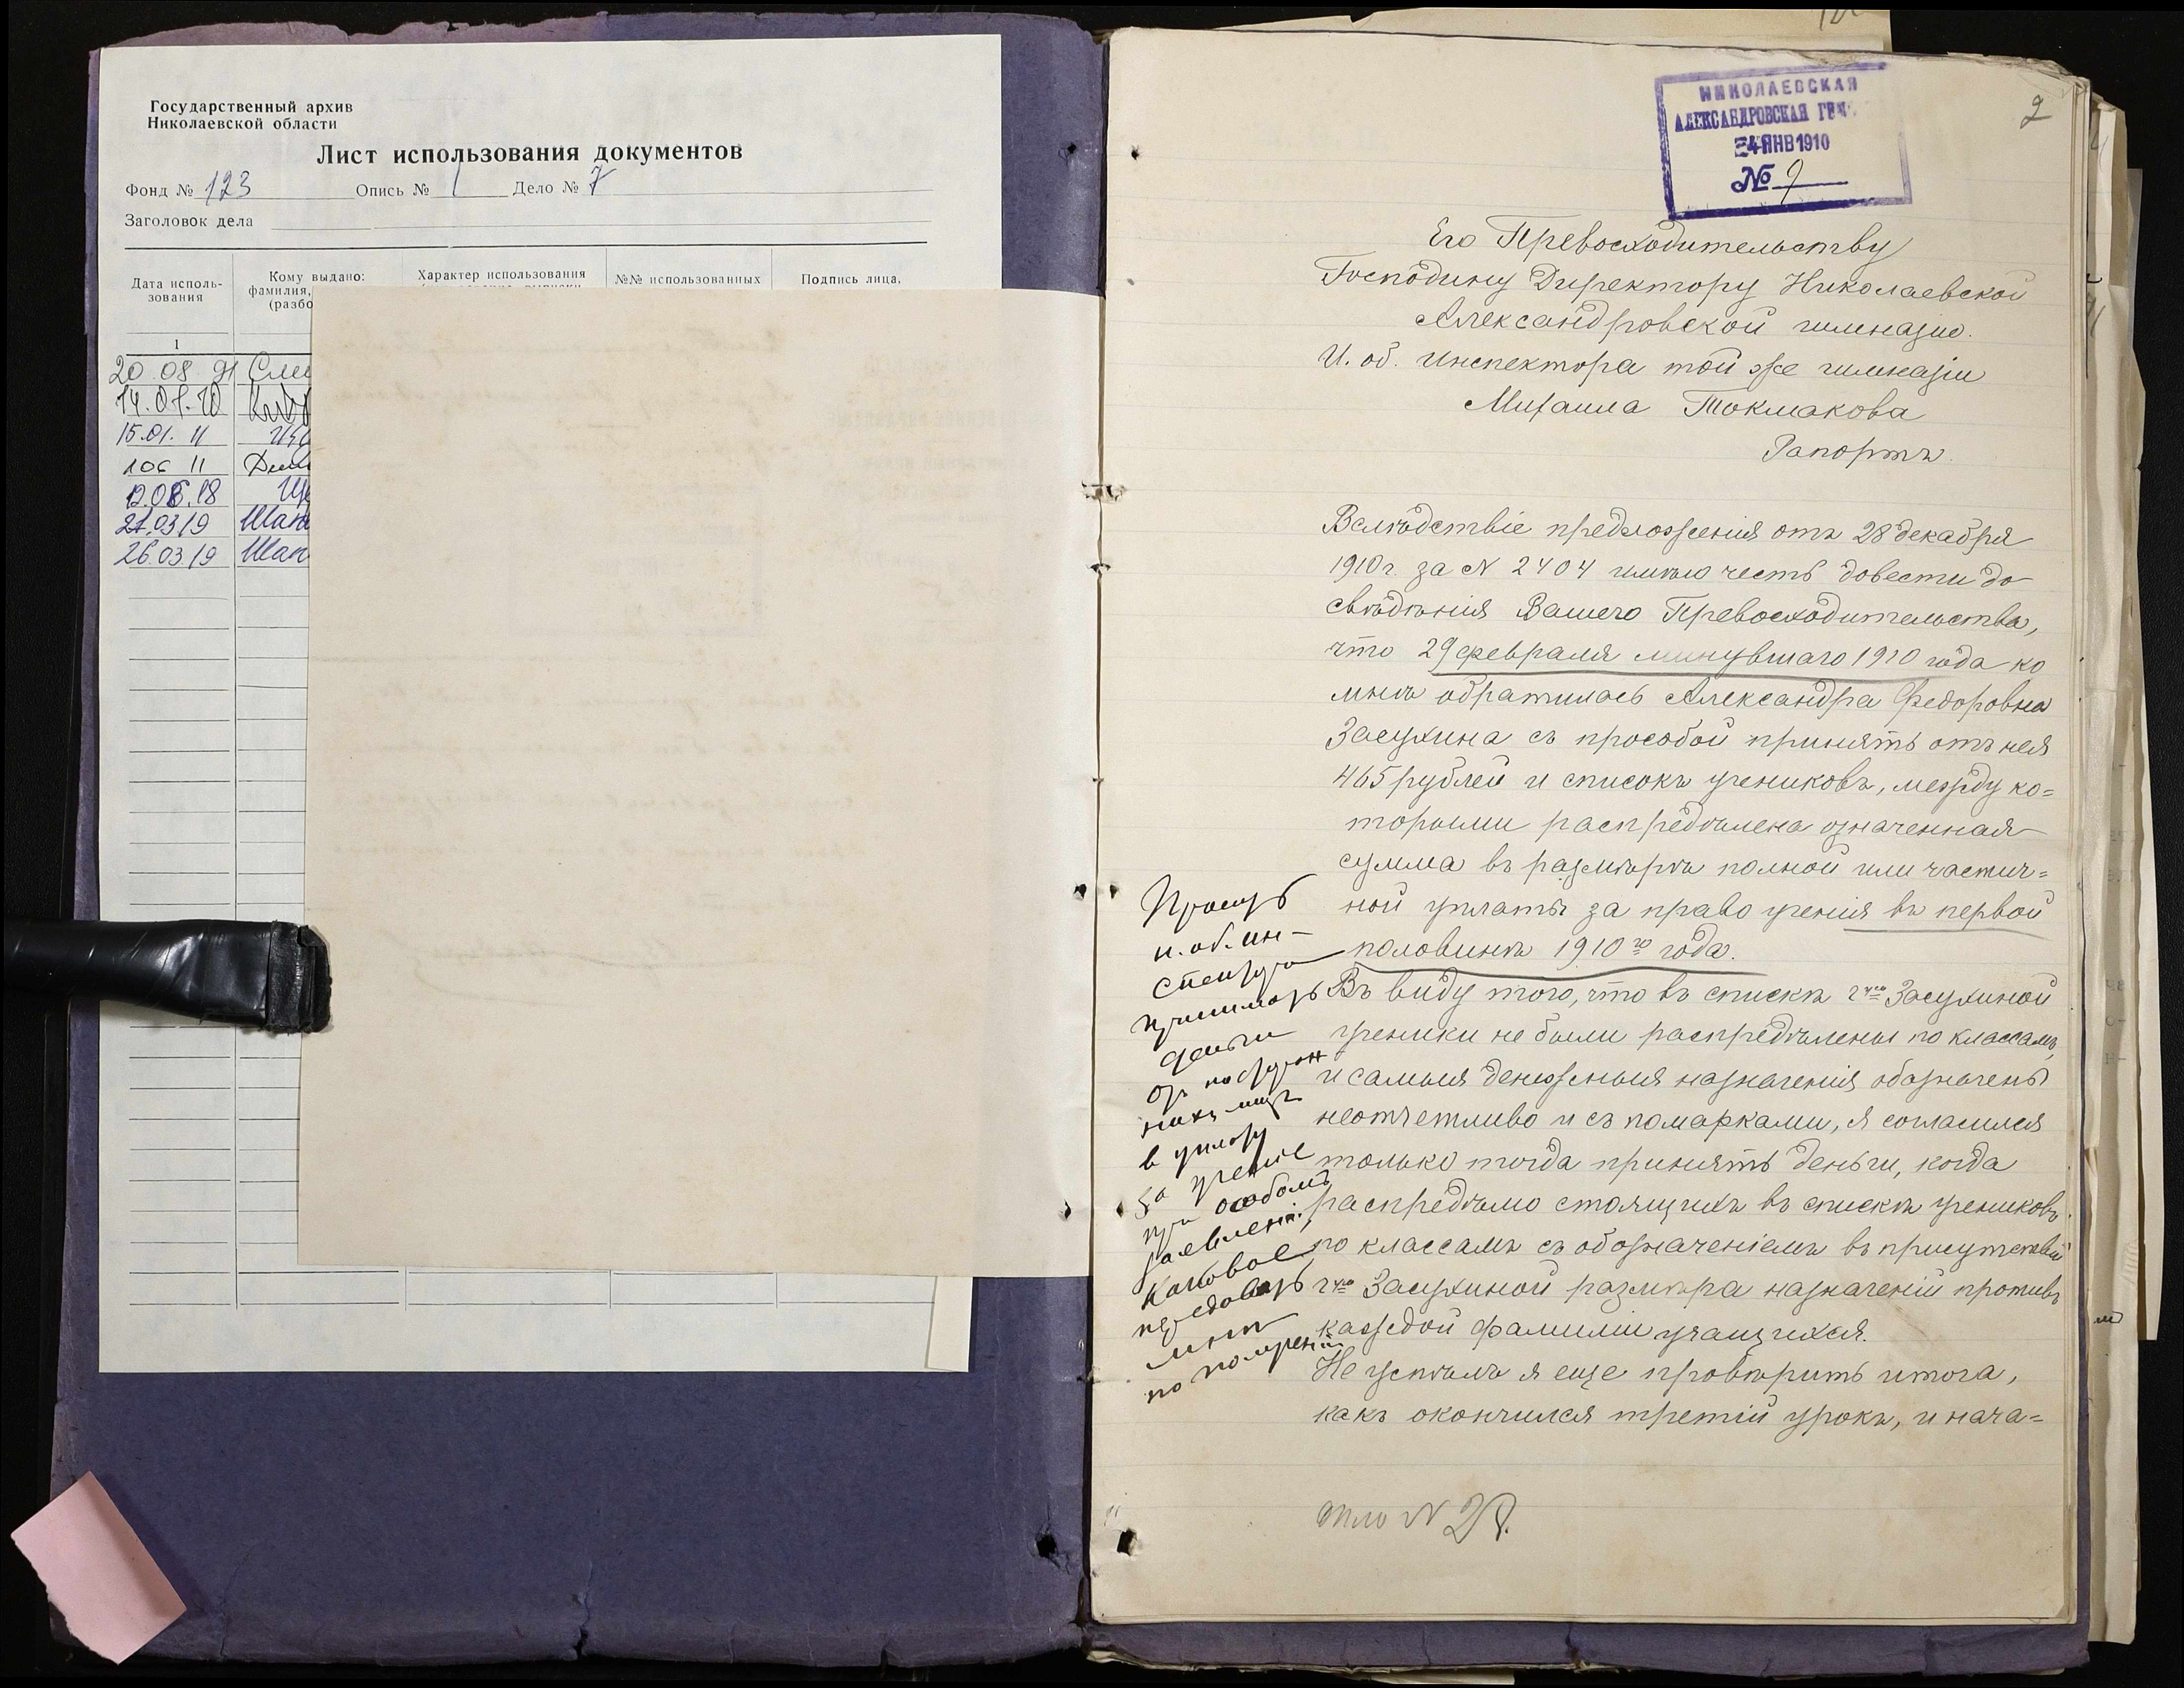 Государственный архив
Николаевской области
Лист использования документов
Фонд № 123 Опись № 1 Дело № 7
Заголовок дела
Дата исполь-
зования
Кому выдано:
фамилия,
(разбо
Характер использования
№№ использованных
Подпись лица,
1
20.08.91
14.01.10
15.01.11
106 11
21.03 19 Шап
26.03.19 Шап
2
НИКОЛАЕВСКАЯ
АЛЕКСАНДРОВСКАЯ ГИМ
24 ЯНВ 1910
№ 9
Его Превосходительству
Господину Директору Николаевской
Александровской гимназіи.
И. об. Инспектора той же гимназіи
Михаила Токмакова
Рапортъ
Вслѣдствіе предложенія отъ 28 декабря
1910 г. за N 2404 имѣю честь довести до
свѣдѣнія Вашего Превосходительства,
что 29 февраля минувшаго 1910 года ко
мнѣ обратилась Александра Федоровна
Засухина съ просьбой принять отъ нея
465 рублей и списокъ учениковъ, между ко=
торыми распредѣлена означенная
сумма въ размѣрѣ полной или частич=
ной уплаты за право ученія въ первой
половинѣ 1910го года.
Въ виду того, что въ спискѣ г-жи Засухиной
ученики не были распредѣлены по классамъ,
и самыя денежныя назначенія обозначены
неотчетливо и съ помарками, я согласился
только тогда принять деньги, когда
распредѣлю стоящихъ въ спискѣ учениковъ
по классамъ съ обозначеніемъ въ присутствіи
г-жи Засухиной размѣра назначеній противъ
каждой фамиліи учащихся.
Не успѣлъ я еще провѣрить итога,
какъ окончился третій урокъ, и нача=
Прошу
и. об. ин-
спектора
принимать
деньги
отъ посторон
нихъ лицъ
в уплату
за ученіе
при особомъ
заявленіи,
каковое
передавать
мнѣ
N 28.